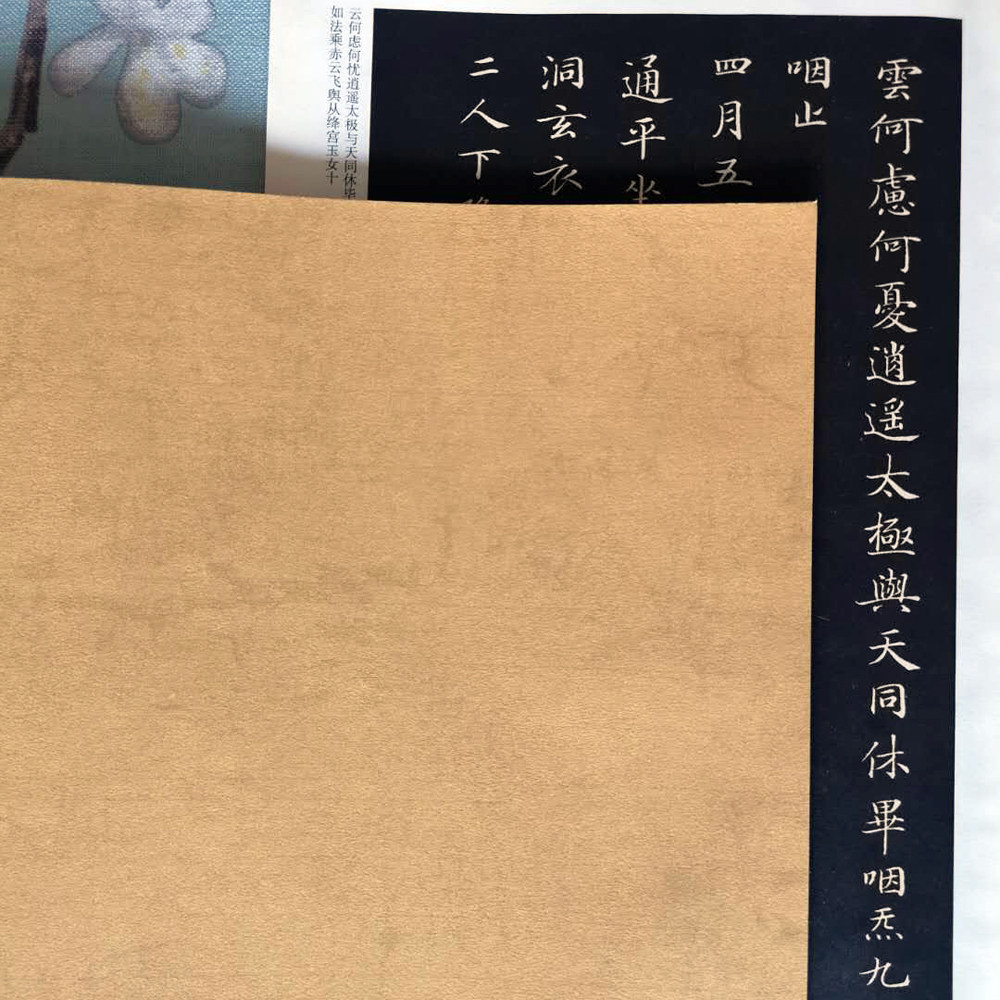 雲何慮何憂逍遥太極與天同休畢咽炁九
咽止
四月五
通平坐
洞玄衣
二人下
云何虑何忧逍遥太极与天同休毕
如法乘赤云飞舆从绛宫玉女十